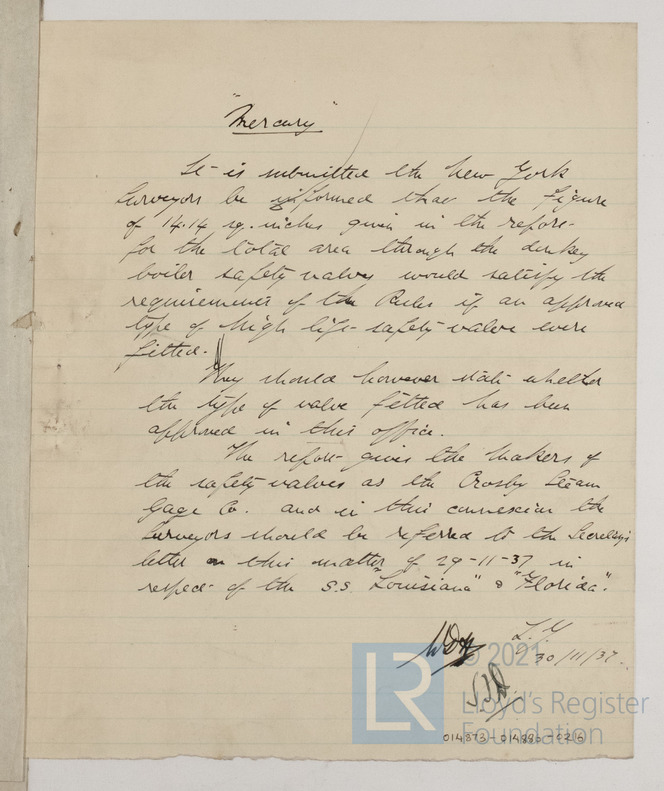 "Mercury"
It is submitted the New York
Surveyors be informed that the figure
of 14.14 sq. inches given in the report
for the total area through the donkey
boiler safety valves would satisfy the
requirements of the Rules if an approved
type of high lift safety valve were
fitted.
They should however state whether
the type of valve fitted has been
approved in this office.
The report gives the makers of
the safety valves as the Crosby Steam
Gage Co. and in this connexion the
Surveyors should be referred to the Secretary's
letter on this matter of 29-11-37 in
respect of the S.S. "Louisiana" & "Florida".
30/11/37.
LR
© 2021
Lloyd's Register
Foundation
014873-014880-0216